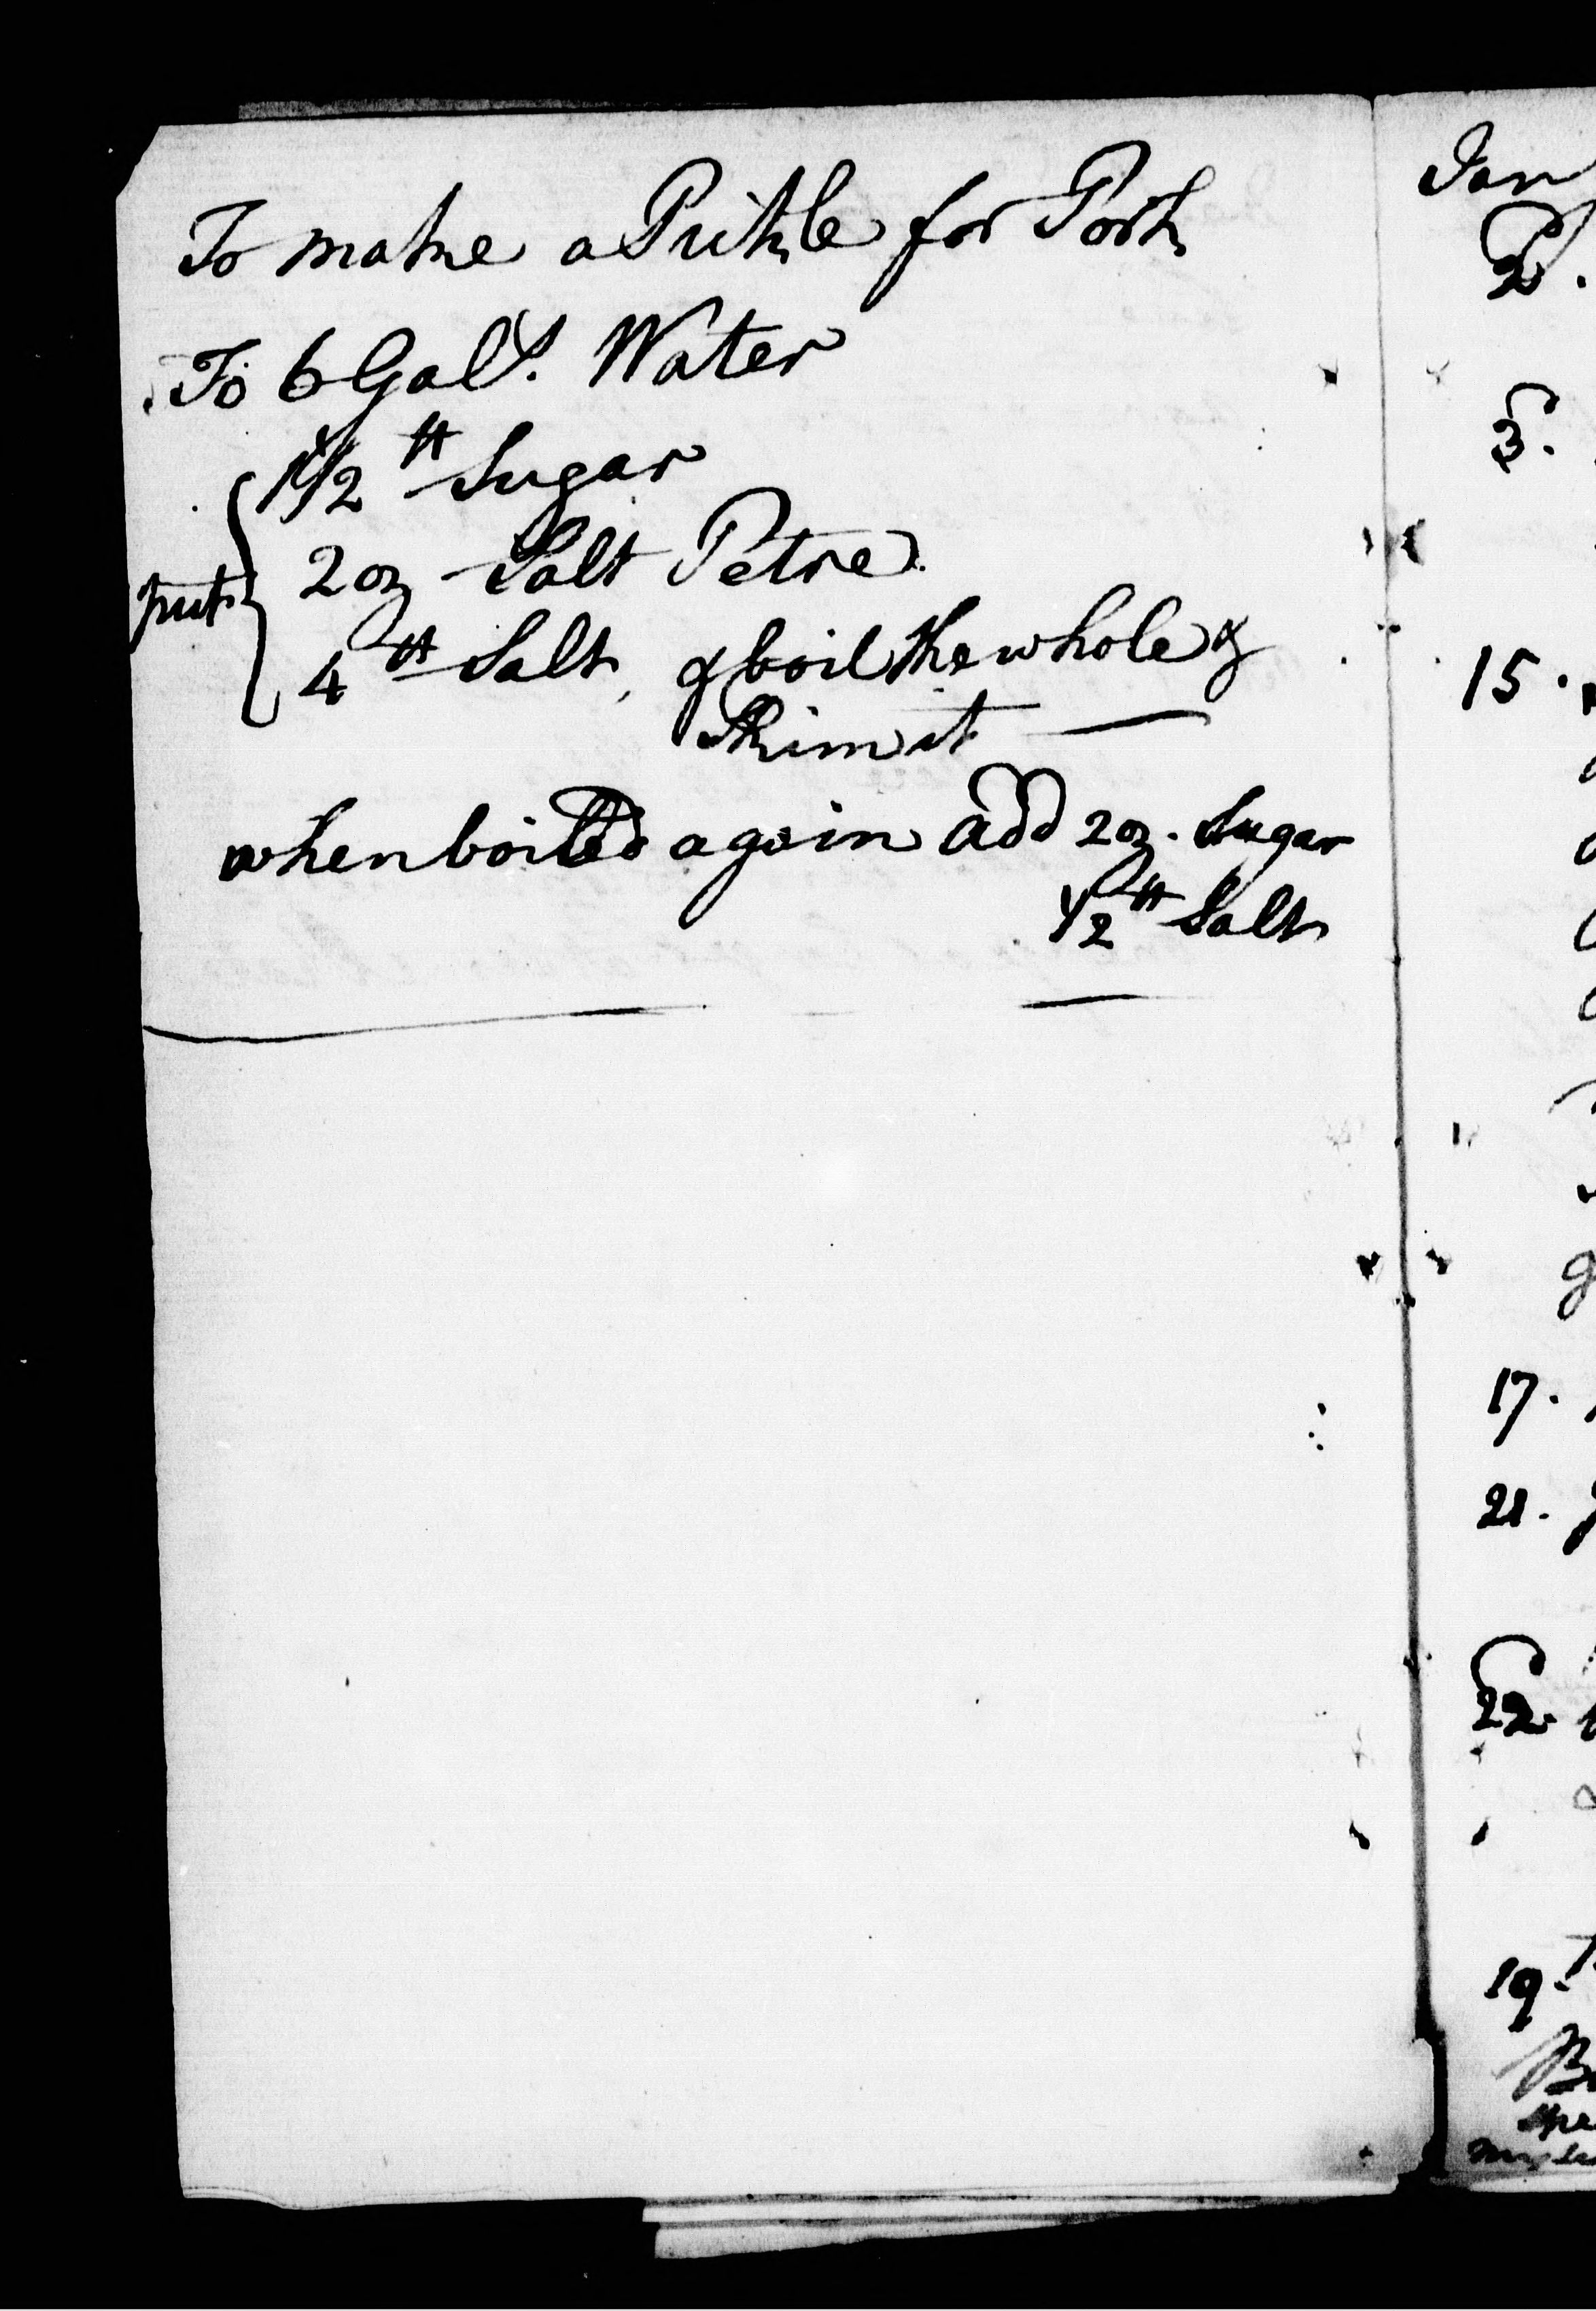 To make a Pickle for Pork
To 6 Gals. Water
1 1/2 lb Sugar
put { 2 oz Salt Petre
4 lb Salt, & boil the whole &
Skim it —
when boiled again add 2 oz. Sugar
1/2 lb Salt
Jan
2.
3.
15.
17.
21.
22.
19.